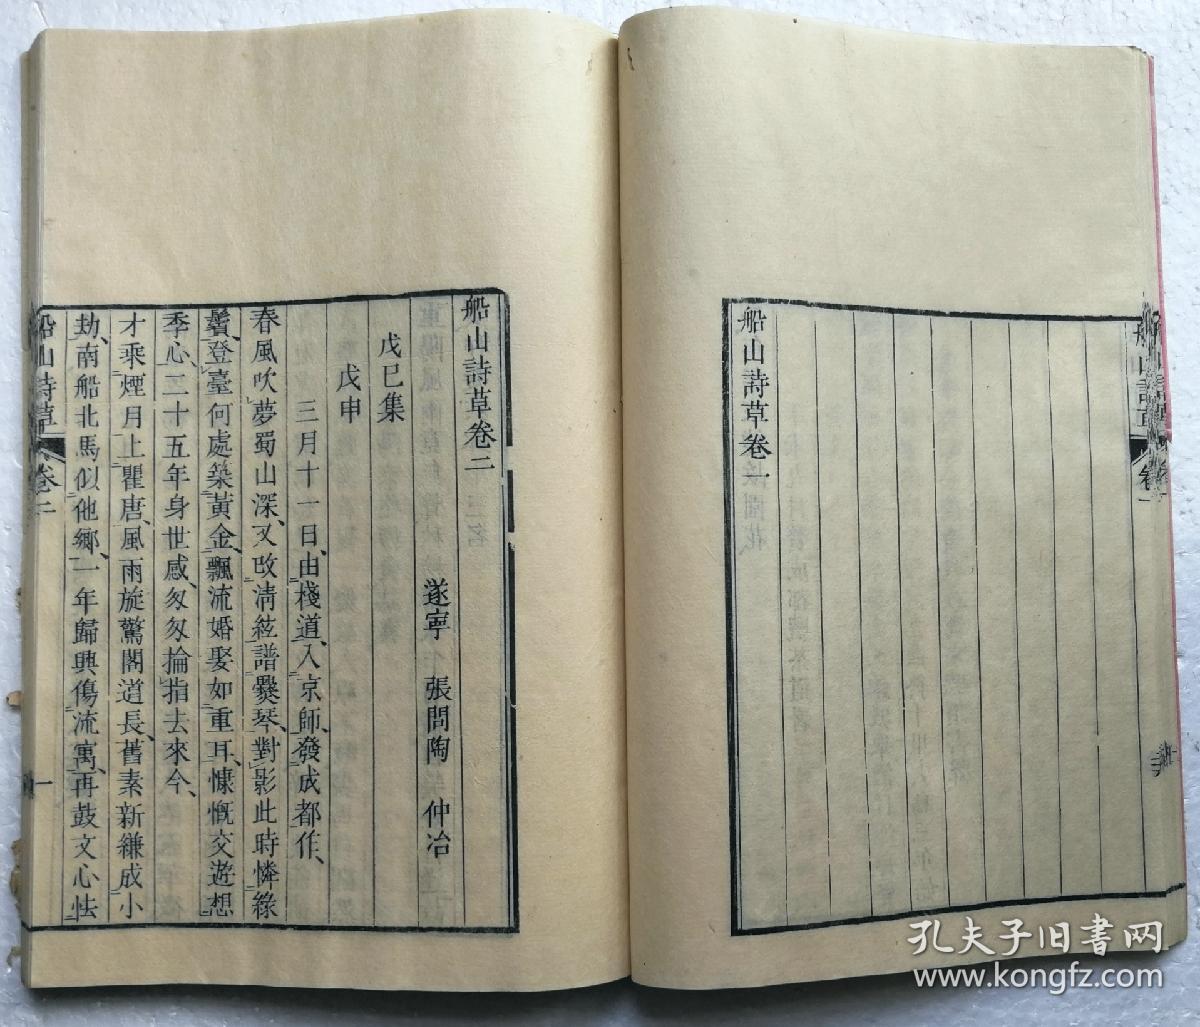 船山詩草卷一
船山詩草卷二
遂寧 張問陶 仲冶
戊己集
戊申
三月十一日由棧道入京師發成都作
春風吹夢蜀山深又改淸絃譜爨琴對影此時憐綠
鬢登臺何處築黃金飄流婚娶如重耳慷慨交遊想
季心二十五年身世感匆匆掄指去來今
才乘煙月上瞿唐風雨旋驚閣道長舊素新縑成小
劫南船北馬似他鄉一年歸興傷流寓再鼓文心怯
船山詩草 卷二 一
孔夫子旧书网
www.kongfz.com